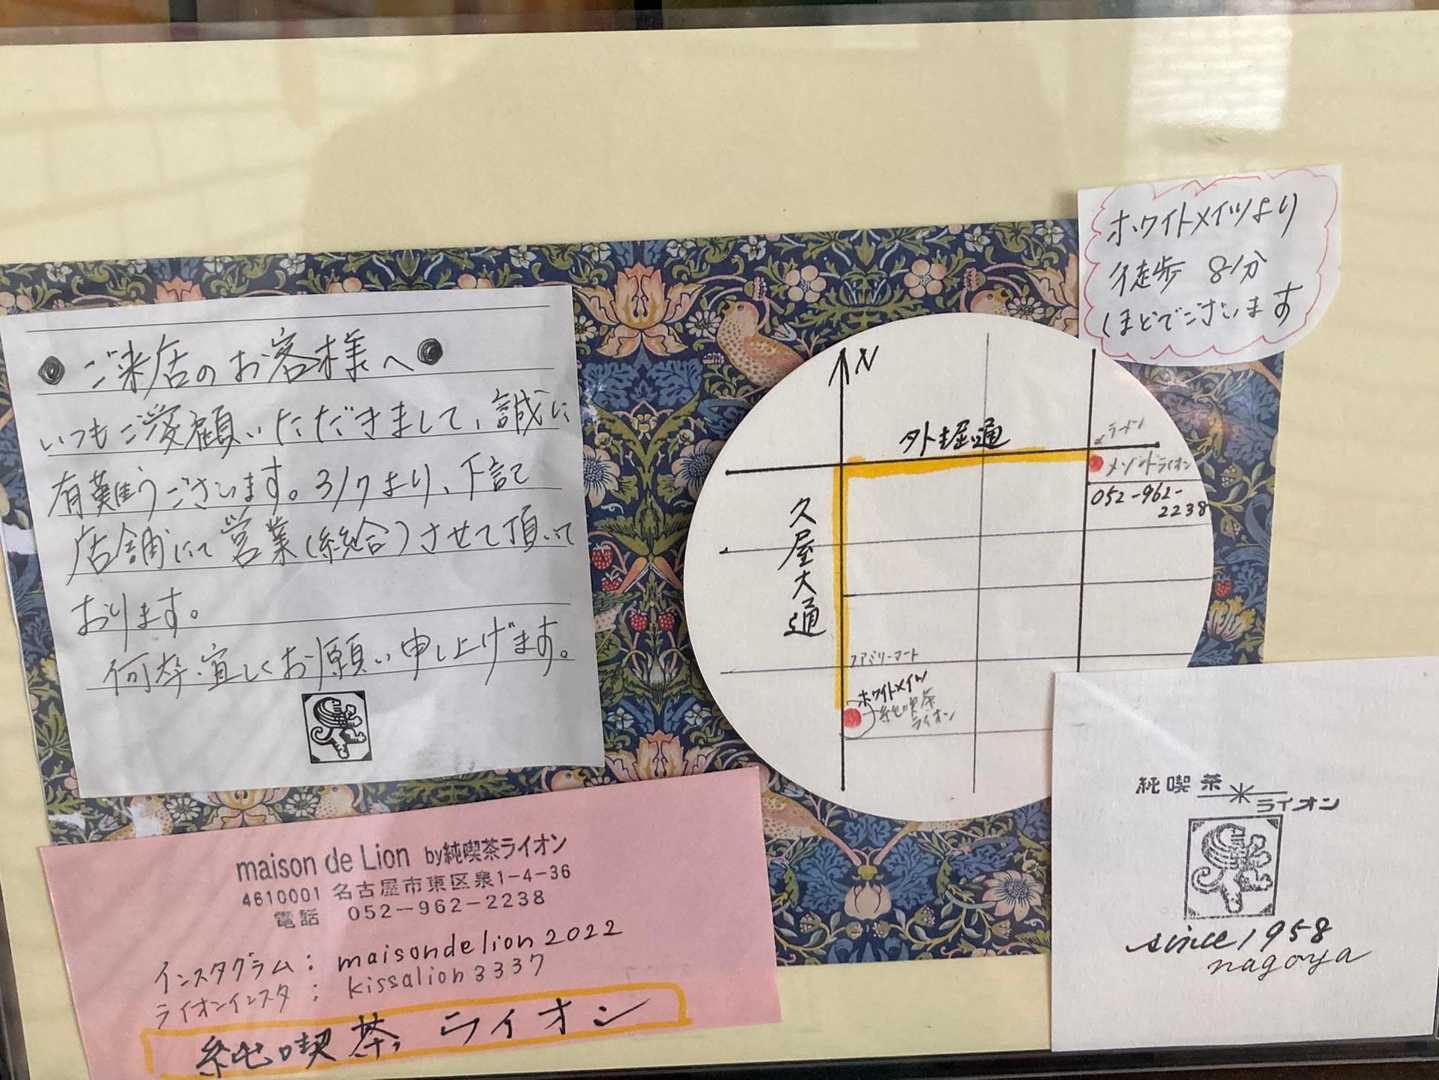 ●ご来店のお客様へ●
いつもご愛顧いただきまして、誠に
有難うございます。3/7より、下記
店舗にて営業(総合)させて頂いて
おります。
何卒宜しくお願い申し上げます。
ホワイトメイツより
徒歩 8分
ほどでございます
N
外堀通
久屋大通
メゾンドライオン
052-962-
2238
ファミリーマート
ホワイトメイツ
純喫茶
ライオン
maison de Lion by純喫茶ライオン
4610001 名古屋市東区泉1-4-36
電話 052-962-2238
インスタグラム: maisondelion2022
ライオンインスタ: kissalion3337
純喫茶 ライオン
純喫茶
ライオン
since 1958
nagoya